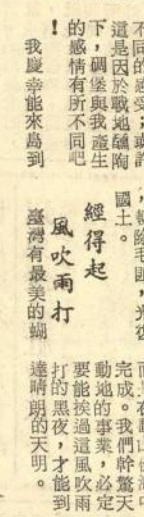 不同的感受;或許
這是因於戰地醺陶
下,碉堡與我產生
的感情有所不同吧
!
我慶幸能來島到
國土。
經得起
風吹雨打
臺灣有最美的蝴
完成。我們幹驚天
動地的事業,必定
要能挨過這風吹雨
打的黑夜,才能到
達晴朗的天明。